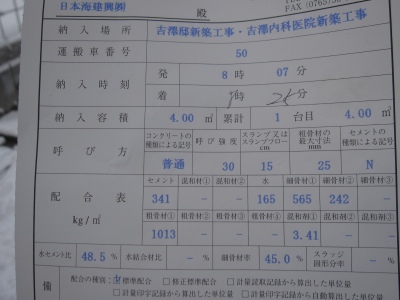 日本海建興㈱ 殿
FAX (0765)
納入場所 吉澤邸新築工事・吉澤内科医院新築工事
運搬車番号 50
納入時刻 発 8時 07分
着 時 分
納入容積 4.00㎥ 累計 1台目 4.00㎥
呼び方 コンクリートの種類による記号 呼び強度 スランプ又はスランプフロー cm 粗骨材の最大寸法 mm セメントの種類による記号
普通 30 15 25 N
配合表 kg/㎥ セメント 混和材① 混和材② 水 細骨材① 細骨材② 細骨材③
341 － － 165 565 242 －
粗骨材① 粗骨材② 粗骨材③ 混和剤① 混和剤② 混和剤③
1013 － － － 3.41 － －
水セメント比 48.5％ 水結合材比 －％ 細骨材率 45.0％ スラッジ固形分率 －％
備 配合の種別：☑標準配合 □修正標準配合 □計量読取記録から算出した単位量
□計量印字記録から算出した単位量 □計量印字記録から自動算出した単位量